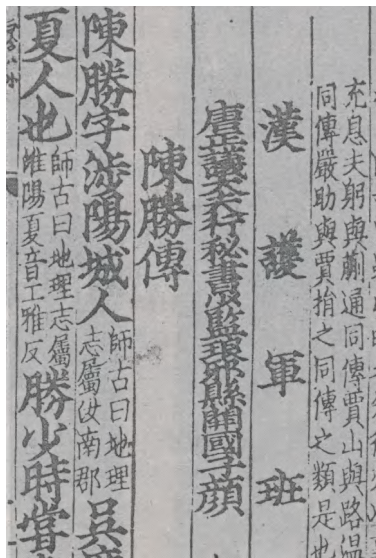 充息夫躬與蒯通同傳賈山與路溫
同傳嚴助與賈捐之同傳之類是也
漢護軍班
唐正議大夫行秘書少監琅邪縣開國子顏
陳勝傳
陳勝字涉陽城人師古曰地理
志屬汝南郡吳
夏人也師古曰地理志屬
淮陽夏音工雅反勝少時嘗